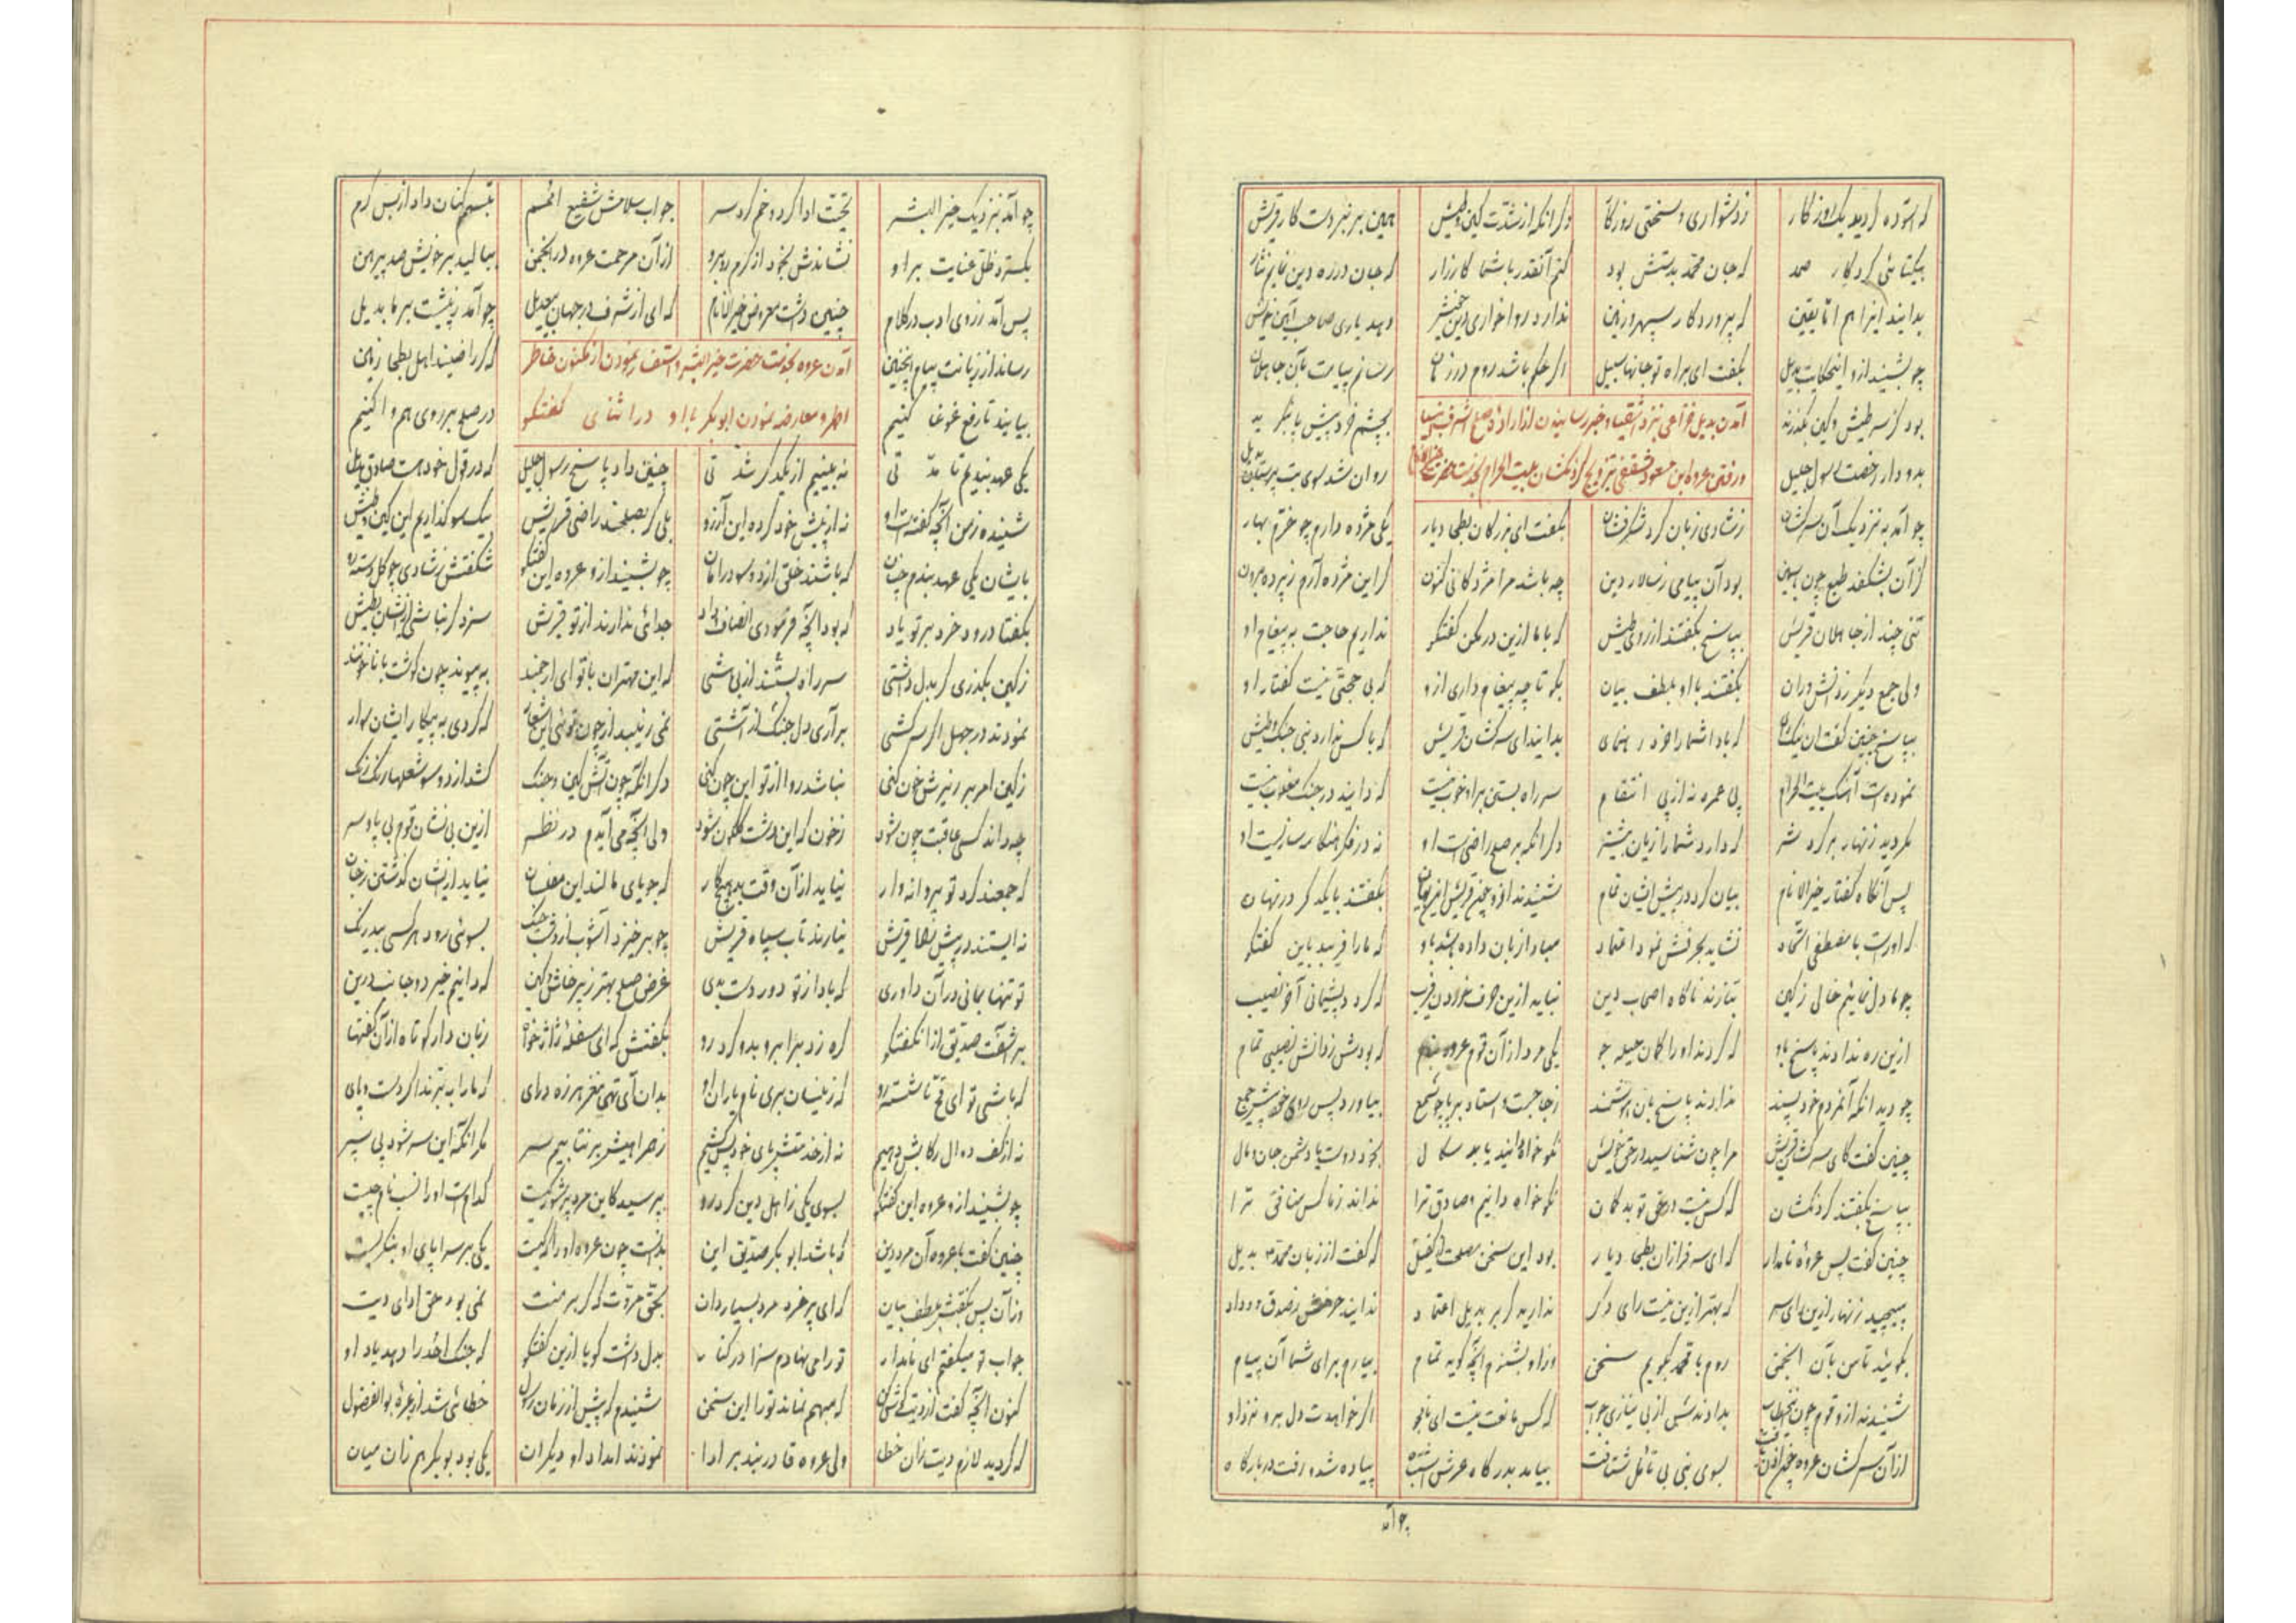 که آسوده گردید یک روزگار زدشواری و سختی روزگار دگر آنکه از شدت کین و طیش همین بر نبردست کار قریش
بیکتائی کردگار صمد که جان محمد بدستش بود کنم آنقدر با شما کارزار که جان در ره دین نمایم نثار
بدانید اینرا هم اما یقین که پروردگار سپهر و زمین ندارد روا خواری دین خویش دهد یاری صاحب آیین خویش
چو بشنید ازو این حکایت بدیل بگفت ای براه تو جانها سبیل اگر حکم باشد روم در زمان رسانم پیامت بآن جاهلان
آمدن بدیل خزاعی نزد اشقیا و خبر رسانیدن از اراده صلح اشرف انبیا
بود کز سر طیش و کین بگذرند بچشم خرد پیش پا بنگرند
ورفتن عروه ابن مسعود ثقفی بتزویج گردنکشان بیت الحرام بخدمت حضرت خیر الانام
بدو داد رخصت رسول جلیل روان شد سوی بت پرستان بدیل
چو آمد به نزدیک آن سرکشان ز شادی زبان کرد شکرفشان بگفت ای بزرگان بطحا دیار یکی مژده دارم چو خرم بهار
کز آن بشکفد طبع چون یاسمین بود آن پیامی ز سالار دین چه باشد مرا مژدگانی کنون گر این مژده آرم ز پرده برون
تنی چند از جاهلان قریش بپاسخ بگفتند از روی طیش که با ما ازین در مکن گفتگو نداریم حاجت به پیغام او
ولی جمع دیگر ز دانشوران بگفتند با او بلطف بیان بگو تا چه پیغام داری ازو که بی حجتی نیست گفتار او
بپاسخ چنین گفت آن نیک رای که باد اشما را خرد رهنمای بدانید ای سرکشان قریش که با کس ندارد نبی جنگ و طیش
نمودست آهنگ بیت الحرام پی عمره نه از پی انتقام سر راه بستن براو خوب نیست که دانید در جنگ مغلوب نیست
مگردید زنهار برگرد شر که دارد شما را زیان بیشتر دگر آنکه بر صلح راضی است او نه در فکر هنگامه سازیست او
پس آنگاه گفتار خیر الانام بیان کرد در پیش ایشان تمام شنیدند ازو چون قریش این بیان بگفتند با یکدگر در نهان
که اوراست با مصطفی اتحاد نشاید بحرفش نمود اعتماد مبادا زبان داده باشد باو که ما را فریبد باین گفتگو
چو ما دل نمائیم خالی ز کین بتازند ناگاه اصحاب دین نباید ازین حرف خوردن فریب که گردد پشیمانی آخر نصیب
ازین ره ندادند پاسخ باو که کردند او را گمان حیله جو یکی مرد از آن قوم عروه بنام که بودش ز دانش نصیبی تمام
چو دید آنکه آنمردم خود پسند ندادند پاسخ بآن هوشمند ز جا جست و استاد بر پا چو شمع بیاورد پس روی خود پیش جمع
چنین گفت کای سرکشان قریش مرا چون شناسید در حق خویش نکو خواه دانید یا بد سگال بخود دوست یا دشمن جان و مال
بپاسخ بگفتند گردنکشان که کس نیست در حق تو بدگمان نکو خواه دانیم و صادق ترا نداند ز ما کس منافق ترا
چنین گفت پس عروه نامدار که ای سرفرازان بطحا دیار بود این سخن مصلحت را کفیل که گفت از زبان محمد بدیل
مپیچید زنهار ازین رای سر که بهتر ازین نیست رای دگر ندارید گر بر بدیل اعتماد ندانید حرفش ز صدق و وداد
بگوئید تا من بآن انجمن روم با محمد بگویم سخن وزاو بشنوم آنچه گوید تمام بیارم برای شما آن پیام
شنیدند ازو قوم چون این خطاب بدادندش از بی نیازی جواب که کس مانعت نیست ای نامجو اگر خواهدت دل برو نزد او
از آن سرکشان عروه چون اذن یافت بسوی نبی بی تأمل شتافت بیامد بدرگاه عرش اشتباه پیاده شد و رفت در بارگاه
چو آمد
چو آمد بنزدیک خیر البشر تحیت ادا کرد و خم کرد سر جواب سلامش شفیع امم تبسم کنان داد از بس کرم
بگسترد ظل عنایت براو نشاندش بخود از کرم روبرو از آن مرحمت عروه در انجمن ببالید بر خویش صد پیرهن
پس آمد ز روی ادب در کلام چنین داشت معروض خیر الانام که ای از شرف در جهان بیعدیل چو آمد ز پیشت بر ما بدیل
آمدن عروه بخدمت حضرت خیر البشر و استفسار نمودن از مکنون خاطر
رساند از زبانت پیام اینچنین که گر راضیند اهل بطحا زمین
اطهر و معارضه نمودن ابوبکر با او در اثنای گفتگو
بیایند تا رفع غوغا کنیم در صلح بر روی هم وا کنیم
یکی عهد بندیم تا مدتی نه بینیم از یکدگر شدتی چنین داد پاسخ رسول جلیل که در قول خود هست صادق بدیل
شنیده ز من آنچه گفته است او نه از پیش خود کرده این آرزو بلی گر بصلحند راضی قریش بیکسو گذاریم این کین و طیش
بایشان یکی عهد بندم چنان که باشند خلق از دو سو در امان چو بشنید ازو عروه این گفتگو شکفتش ز شادی چو گل
بگفتا درود خرد بر تو باد که بود آنچه فرمودی انصاف و داد جدائی ندارند از تو قریش سزد گر نباشی از ایشان بطیش
ز کین بگذری گر بدل داشتی سر راه بستند از بی شی که این مهتران با تو ای ارجمند به پیوند چون گوشت با ناخونند
نمودند در جهل اگر سرکشی برآری دل جنگ از آشتی نمی زیبد از چون توئی این شعار که گردی به پیکار ایشان سوار
ز کین امر بر ریزش خون کنی نباشد روا از تو این چون کنی دگر آنکه چون آتش کین و جنگ کشد از دو سو شعلها رنگ رنگ
چه داند کسی عاقبت چون شود ز خون که این دشت گلگون شود ولی آنچه می آیدم در نظر ازین بی نشان قوم بی پا و سر
که جمعند گرد تو پروانه وار نیاید از آن وقت پیکار که جویای مالند این مفلسان نیاید از ایشان گذشتن ز جان
نه ایستند در پیش قریش نیارند تاب سپاه قریش چو بر خیزد آشوب از وقت جنگ بسوئی رود هر کسی بیدرنگ
تو تنها بمانی در آن داوری که بادا ز تو دور دست بدی غرض صلح بهتر ز پرخاش و کین که دانیم خیر دو جانب درین
برآشفت صدیق از آن گفتگو گره زد بر ابرو بدو کرد رو بگفتش که ای سفله ژاژ خا زبان دار کوتاه از آن گفتها
که باشی تو ای ناشسته رو که زینسان بری نام یاران او بدان ای تهی مغز هرزه درای که ما را ببرند اگر دست و پای
نه از کف دوال رکابش دهیم نه از خدمتش پای خود پس کشیم ز همراهیش بر نتابیم سر مگر آنکه این سر شود پی سپر
چو بشنید ازو عروه این گفتگو بسوی یکی ز اهل دین کرد رو بپرسید کاین مرد پرشور کیست کدامست او را نسب نام چیست
چنین گفت با عروه آن مرد دین که باشد ابوبکر صدیق این بدانست چون عروه او را که کیست یکی بر سراپای او بنگریست
وز آن پس بگفتش بلطف بیان که ای پر خرد مرد بسیار دان بحق مروت که گر بر منت نمی بود حق ادای دیت
جواب تو میگفتم ای نامدار تو را می نهادم سزا در کنار بدل داشت گویا ازین گفتگو که جنگ احد را دهد یاد او
کنون آنچه گفت از دیت که مبهم نماند تو را این سخن شنیدم که پیش از زمان رسول خطائی شد از عروه بوالفضول
که گردید لازم دیت زان خطا ولی عروه قادر نبد بر ادا نمودند امداد او دیگران یکی بود بوبکر هم زان میان